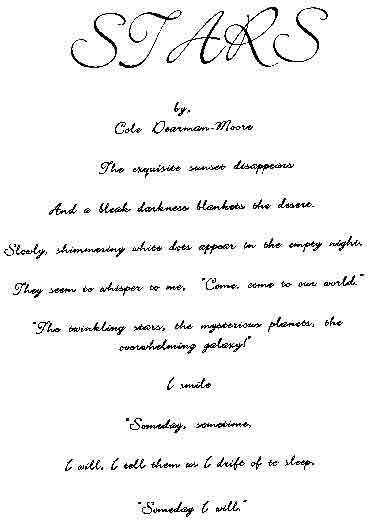 STARS
by,
Cole Dearman-Moore
The exquisite sunset disappears
And a bleak darkness blankets the desert.
Slowly, shimmering white dots appear in the empty night.
They seem to whisper to me, "Come, come to our world."
"The twinkling stars, the mysterious planets, the
overwhelming galaxy!"
I smile
"Someday, sometime,
I will, I tell them as I drift of to sleep.
"Someday I will."